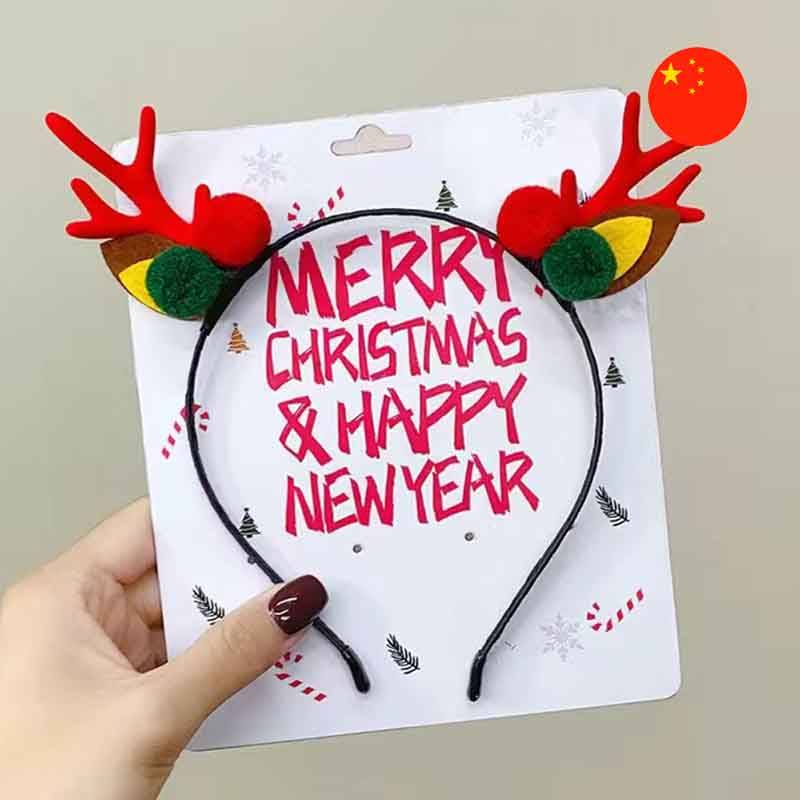 MERRY
CHRISTMAS
& HAPPY
NEW YEAR